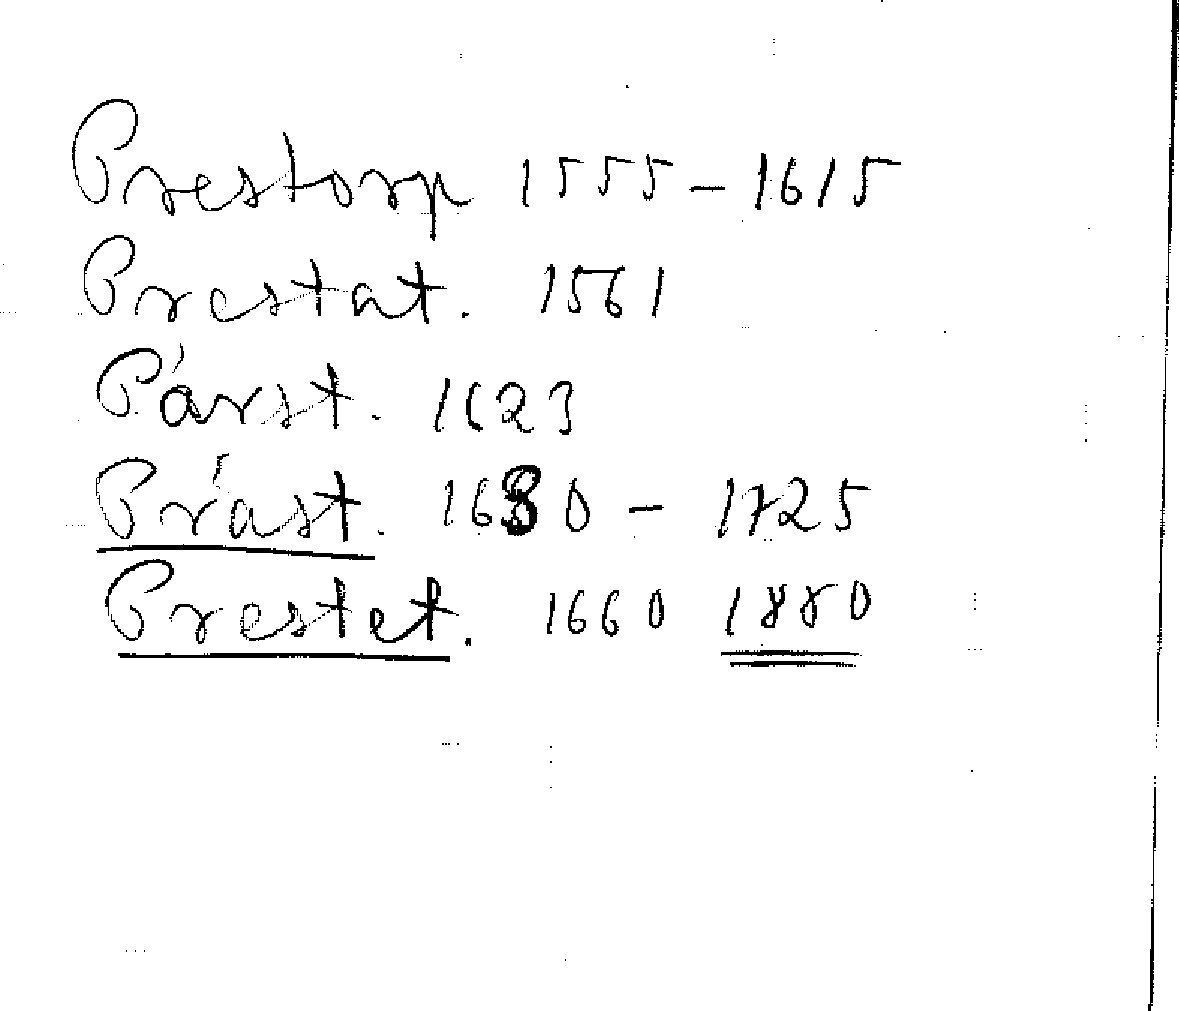 Prestorp 1555 - 1615
Prestat. 1561
Párst. 1623
Prást. 1630 - 1725
Prestet. 1660 1880